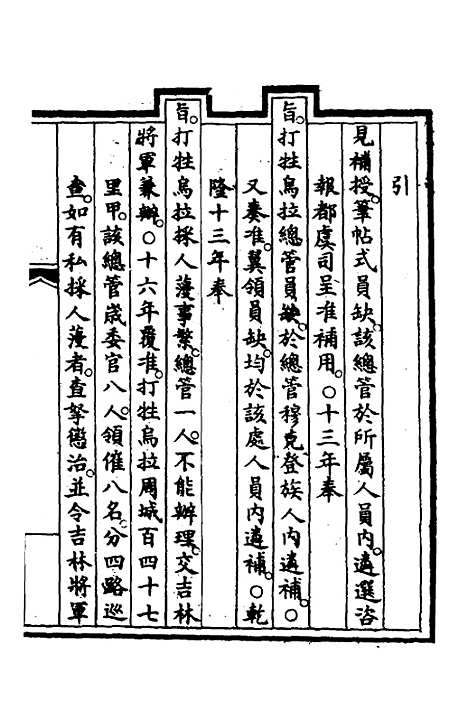 引
見補授。筆帖式員缺。該總管於所屬人員內。遴選咨
報都虞司呈准補用。○十三年奉
旨。打牲烏拉總管員缺。於總管穆克登族人內遴補。○
又奏准。翼領員缺。均於該處人員內遴補。○乾
隆十三年奉
旨。打牲烏拉採人薓事繁。總管一人。不能辦理。交吉林
將軍兼辦。○十六年覆准。打牲烏拉周城百四十七
里甲。該總管歲委官八人。領催八名。分四路巡
查。如有私採人薓者。查拏懲治。並令吉林將軍